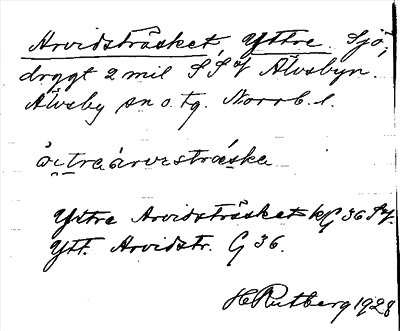 Arvidsträsket, Yttre. Sjö,
drygt 2 mil SSV Älvsbyn.
Älvsby sn o. tg. Norrb. l.
Yttre Arvidsträsket kG 36 SV.
Ytt. Arvidstr. G 36.
H Rutberg 1928